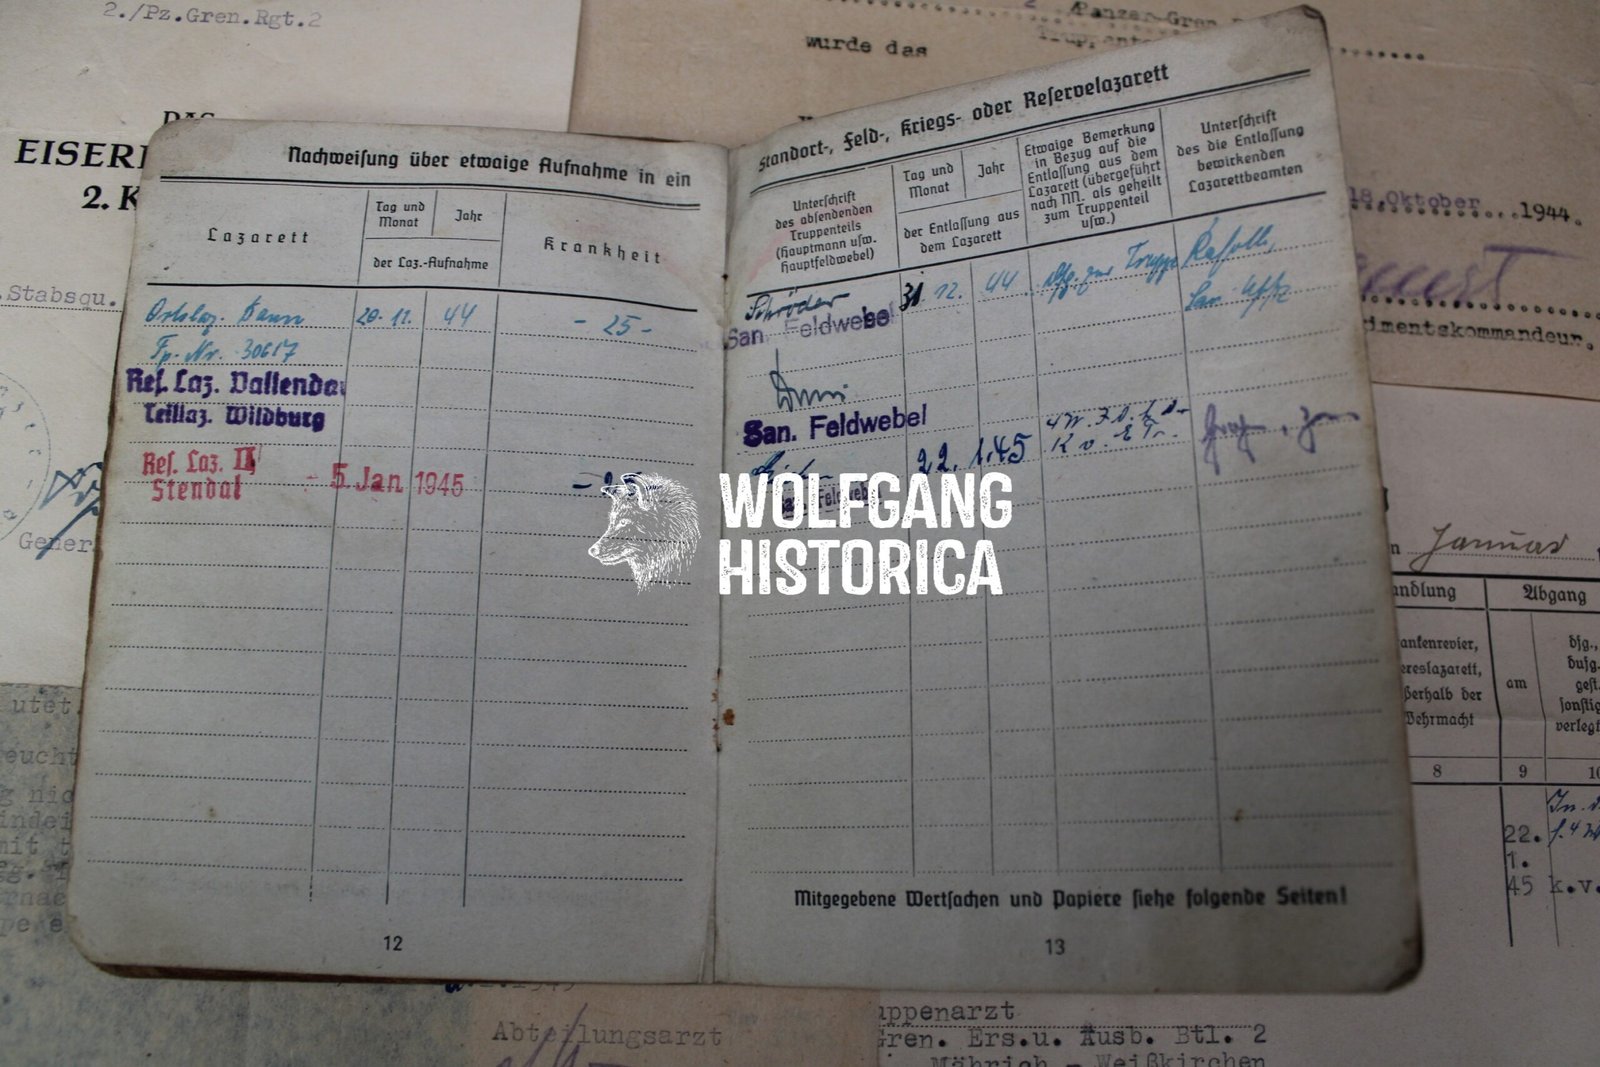 2./Pz.Gren.Rgt.2
DAS
EISER
2. K
.Stabsqu.
Gener
2 /Panzer-Gren.
wurde das
18.Oktober 1944.
imentskommandeur.
Nachweisung über etwaige Aufnahme in ein
Lazarett
Tag und
Monat
Jahr
der Laz.-Aufnahme
Krankheit
Ortslaz. 20. 12. 44 - 25 -
Fp. Nr. 30617
Res. Laz. Vallendar
Teillaz. Wildburg
Res. Laz. II
Stendal
- 5. Jan. 1945
12
Standort-, Feld-, Kriegs- oder Reservelazarett
Unterschrift
des absendenden
Truppenteils
(Hauptmann usw.
Hauptfeldwebel)
Tag und
Monat
Jahr
der Entlassung aus
dem Lazarett
Etwaige Bemerkung
in Bezug auf die
Entlassung aus dem
Lazarett (übergeführt
nach NN. als geheilt
zum Truppenteil
usw.)
Unterschrift
des die Entlassung
bewirkenden
Lazarettbeamten
Schröder 31. 12. 44 zur Truppe
San. Feldwebel
San. Uffz
San. Feldwebel
22. 1. 45
Mitgegebene Wertsachen und Papiere siehe folgende Seiten!
13
WOLFGANG
HISTORICA
Januar
ndlung
Abgang
ankenrevier,
ereslazarett,
ßerhalb der
Wehrmacht
am
dfg.,
dufg.
gest.
sonstig
verlegt
8
9
10
22.
1.
45 k.v.
utet.
eucht
g nic
indei
mit t
Abteilungsarzt
uppenarzt
Gren. Ers.u. Ausb. Btl. 2
Mährisch - Weißkirchen